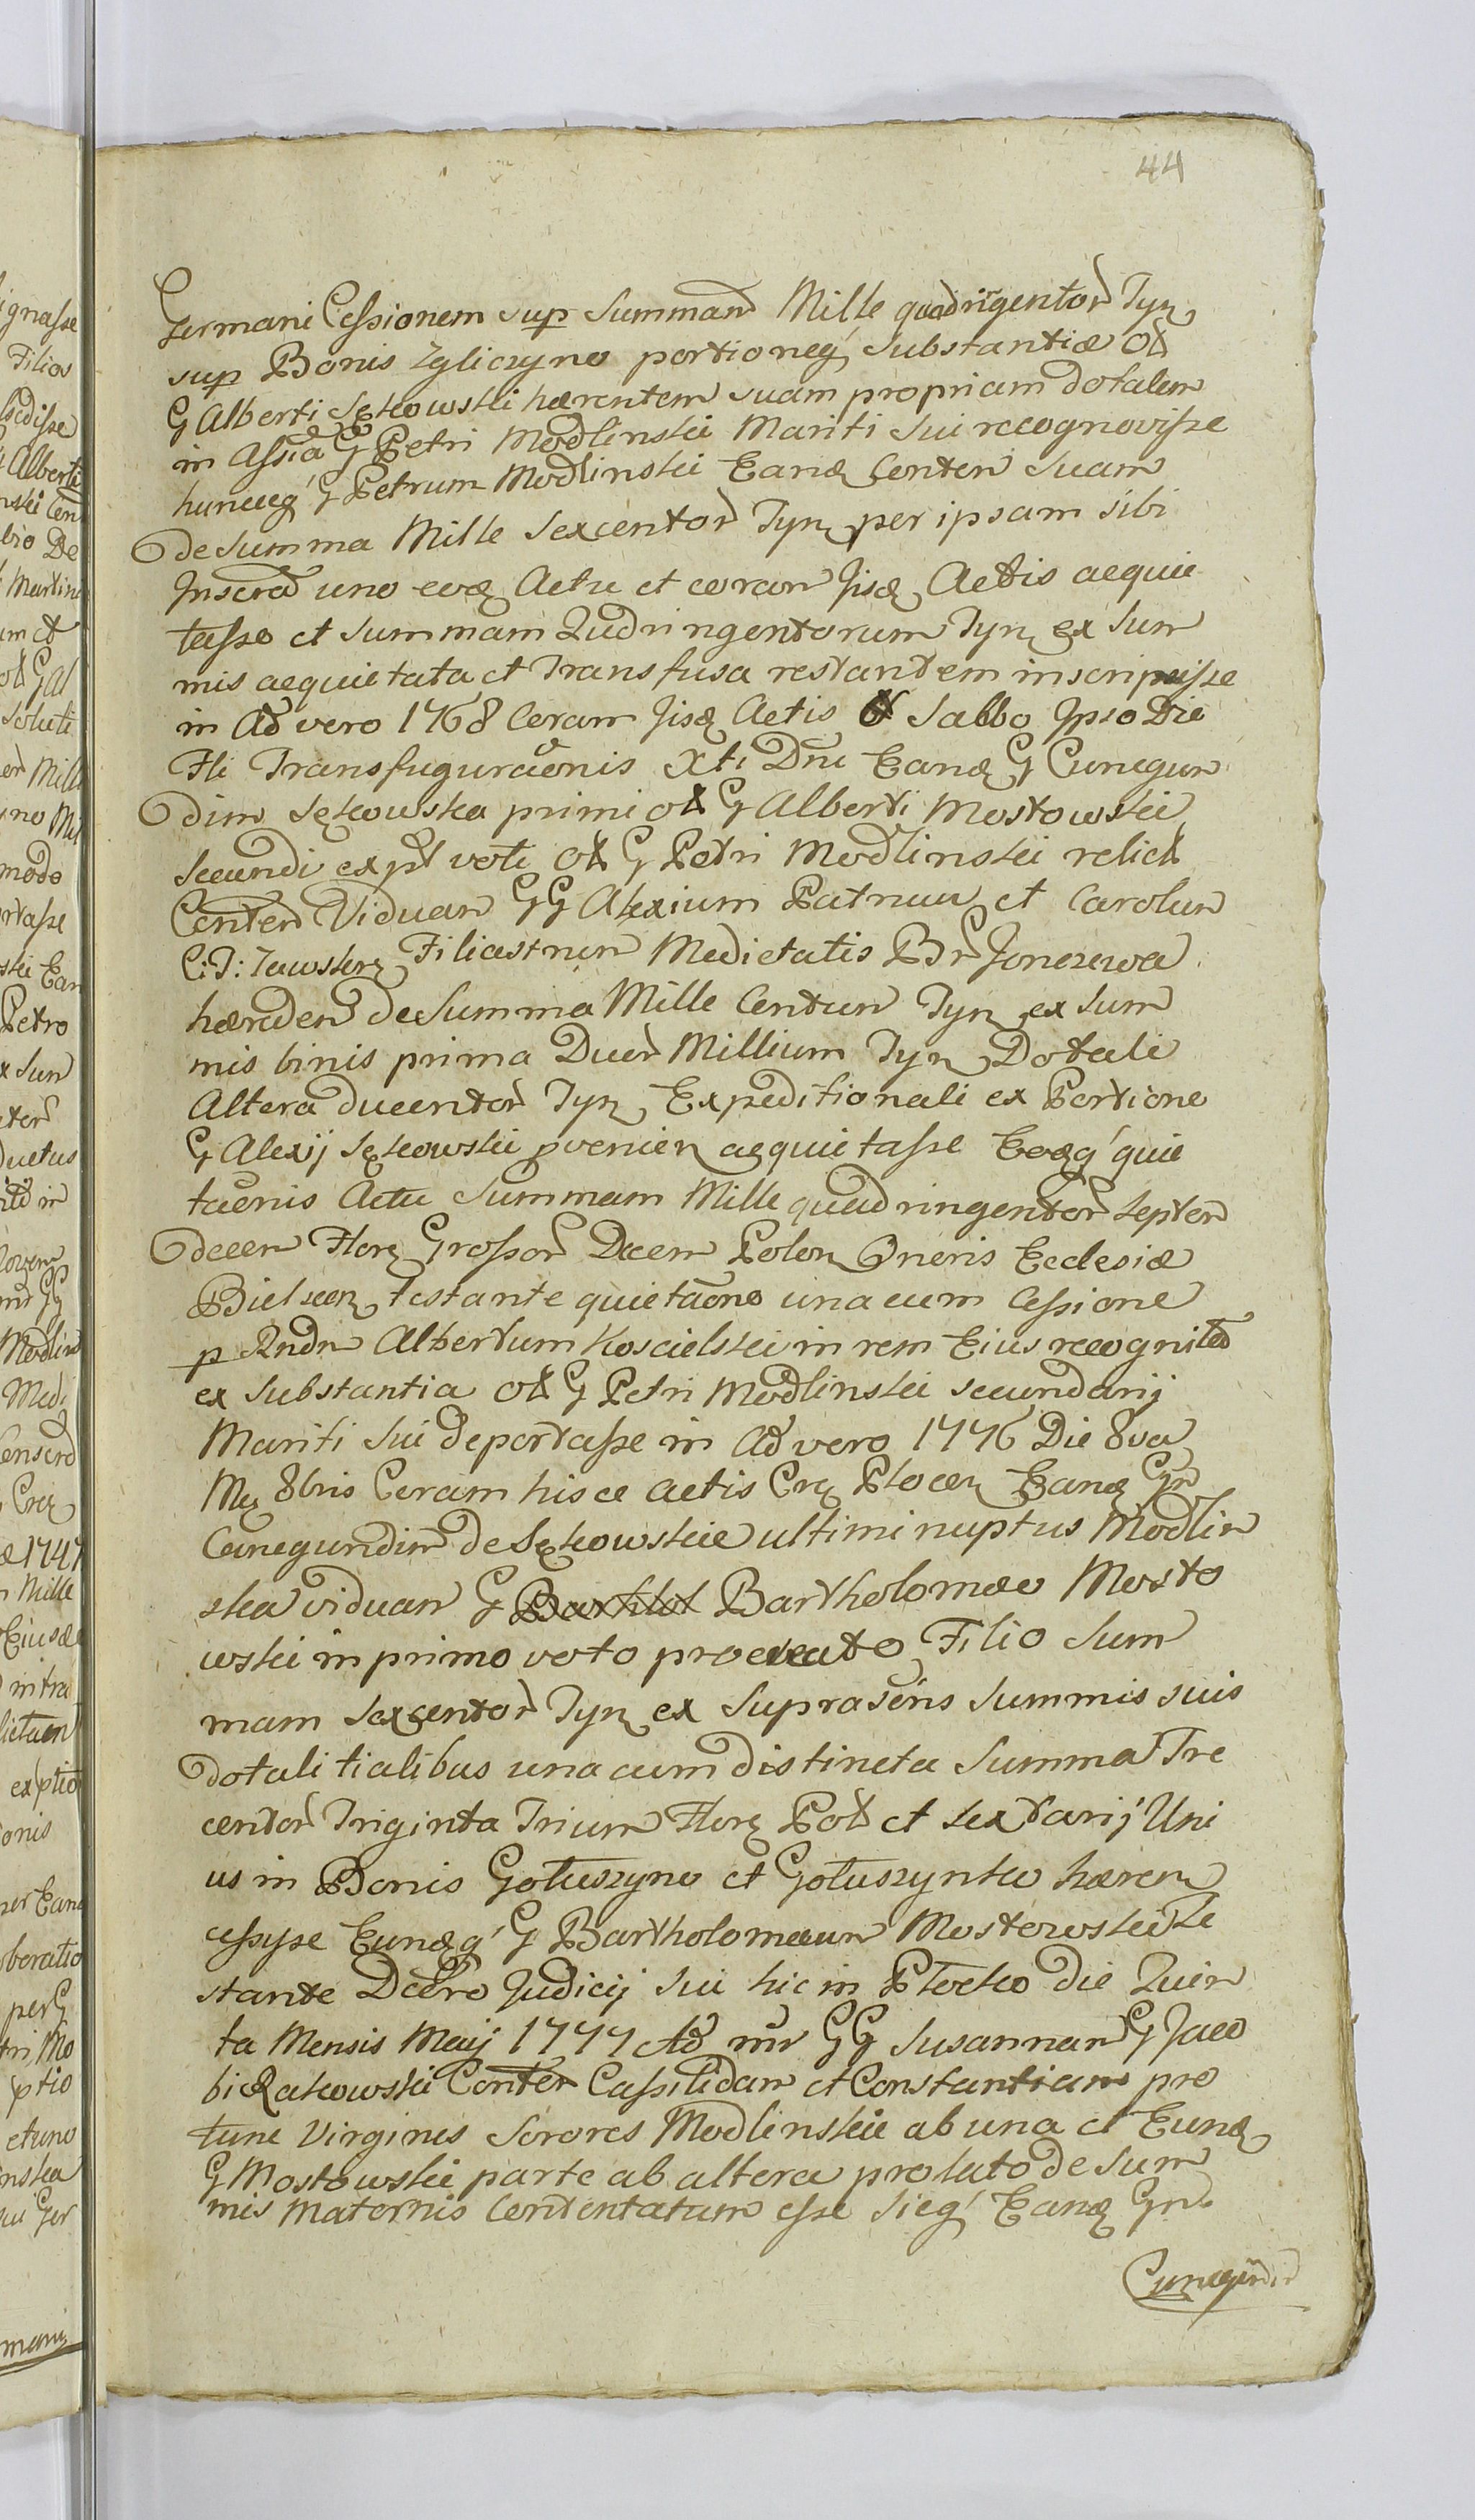 44
Germani Cessionem sup Summam Mille quadrigentor Tyn
sup Bonis Zgliczyno portioneq Substantiæ ol
G Alberti Sękowski hærentem suam propriam dotalem
in Assia G Petri Modlinski Mariti sui recognovisse
huncq G Petrum Modlinski Eand Conten suam
de Summa Mille Sexcentor Tyn per ipsam sibi
Inscrad uno eod Actu et coram Iisd Actis acquie
tasse et Summam Qudringentorum Tyn ex Sum
mis acquietata et Transfusa restantem inscripsisse
in Ad vero 1768 Coram Iisd Actis Sabbo Ipso Die
Fti Transfiguraonis Xti Dni Eand G Cunegun
dim Sękowska primi ol G Alberti Mostowski
Secundi expt voti ol G Petri Modlinski relict
Conten Viduam GG Alexium Patruu et Carolum
C:T: Filiastrum Medietatis Br Jonczewa
hæreden de Summa Mille Centum Tyn ex Sum
mis binis prima Duor Millium Tyn Dotali
Altera ducentor Tyn Expeditionali ex Portione
G Alexij Sękowski pvenien acquietasse Eodq quie
taonis Actu Summam Mille quadringentor Septem
decem Flor Grossor Decem Polon Oneris Ecclesiæ
Bielscen testante quietaone una cum Cessione
p Rndn Albertum Koscielski in rem Eius recognita
ex Substantia ol G Petri Modlinski secundarij
Mariti Sui deportasse in Ad vero 1776 Die 8va
Ms 8bris Coram hisce actis Cr Plocen Eand Gn
Cunegundim de Sękowskie ultimi nuptus Modlin
ska viduam G Barthol Bartholomæo Mosto
wski in primo voto procreato Filio Sum
mam Sexcentor Tyn ex Suprascris Summis suis
dotalitialibus una cum distincta Summa Tre
centor Triginta Trium Flor Pol et Sextarij Uni
us in Bonis Gołuszyno et Gołuszynko hæren
cessyse Eundq G Bartholomæum Mostowski Te
stante Dcro Judicij Sui hic in Płocko die Quin
ta Mensis Maij 1777 Ad nr GG Susannam G Jaco
bi Rakowski Conten Cassildam et Constantiam pro
tunc Virgines Sorores Modlinskie ab una et Eund
G Mostowski parte ab altera prolato de Sum
mis Maternis Contentatum esse Sicq Eand Gn
Cunegundin